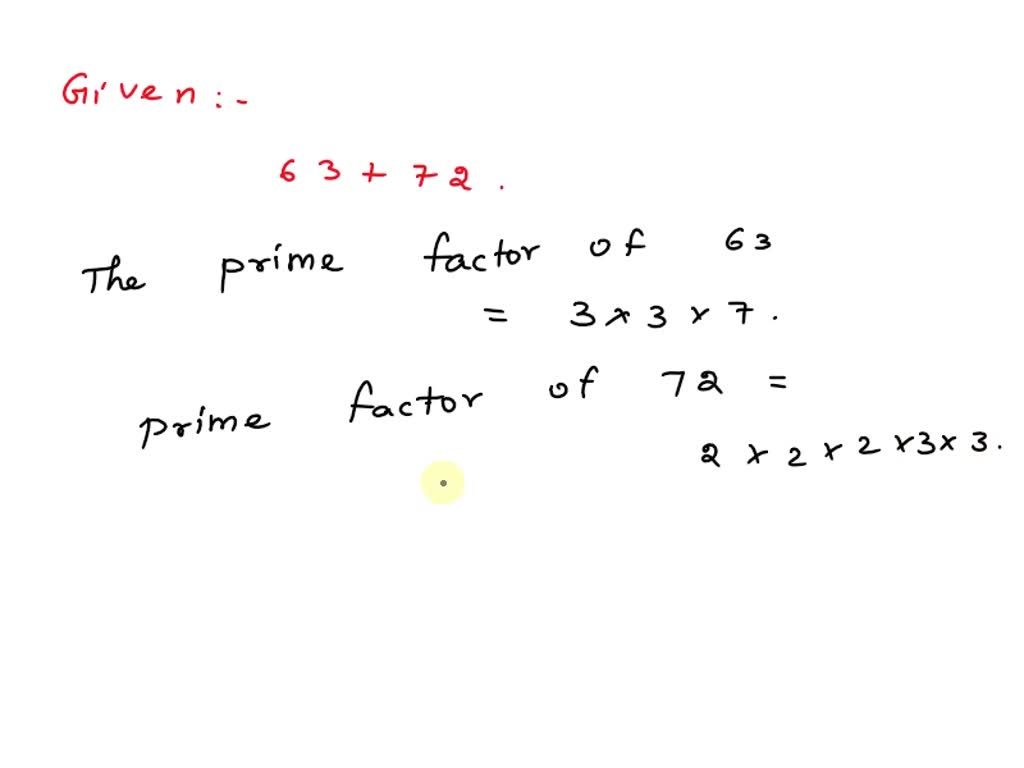 Given :-
63 + 72 .
The prime factor of 63
= 3 × 3 × 7 .
prime factor of 72 =
2 × 2 × 2 × 3 × 3 .